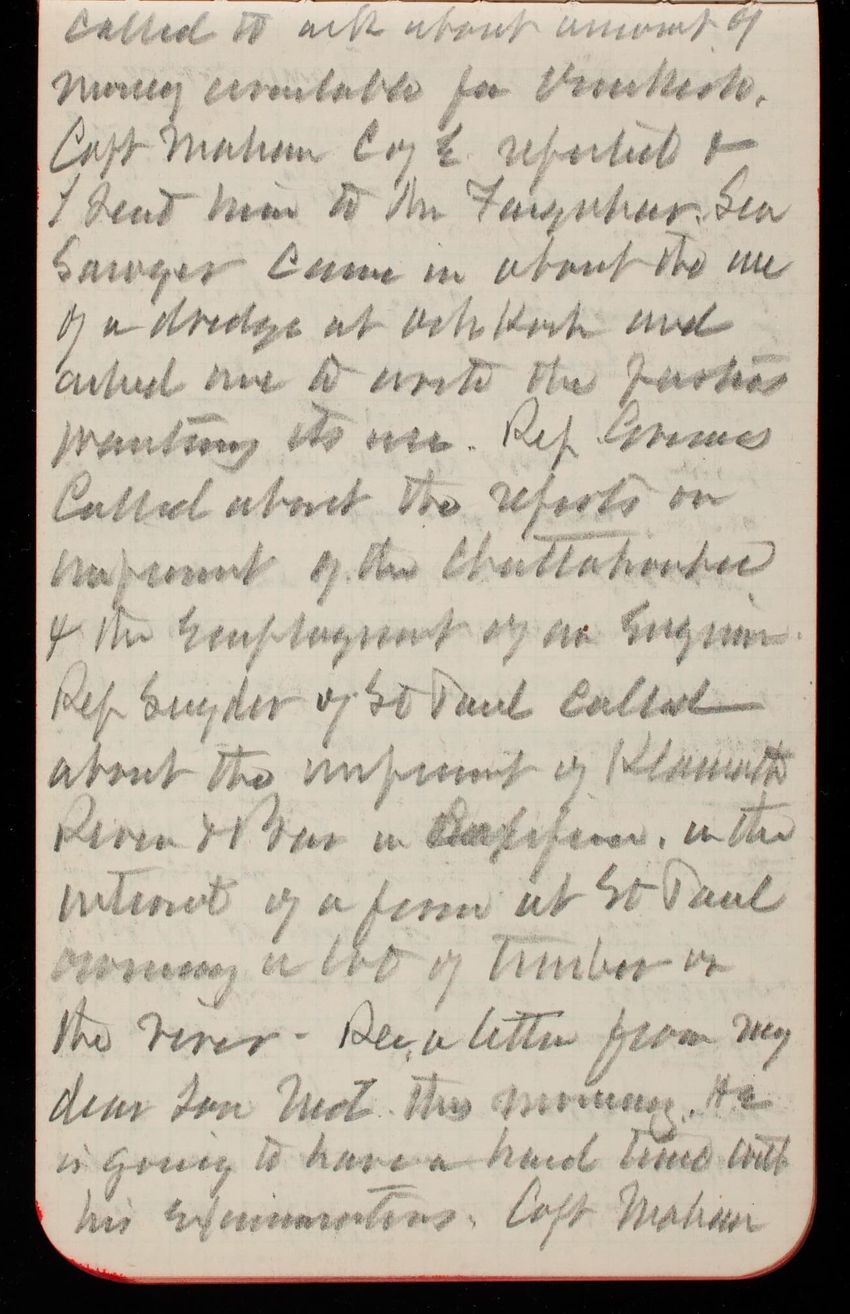 called to ask about amount of
money available for
Capt Mahan Coy E reported &
I sent him to Mr Farquhar. Sen
Sawyer came in about the use
of a dredge at Oshkosh and
asked me to write the parties
wanting its use. Rep Grimes
Called about the reports on
improvmt of the Chattahoochee
& the Employment of an Engineer.
Rep Snyder of St Paul called
about the improvmt of Klamath
River & Bar in in the
interest of a firm at St Paul
owning a lot of timber on
the river - Rec. a letter from my
dear Son this morning. He
is going to have a hard time with
his Examinations. Capt Mahan